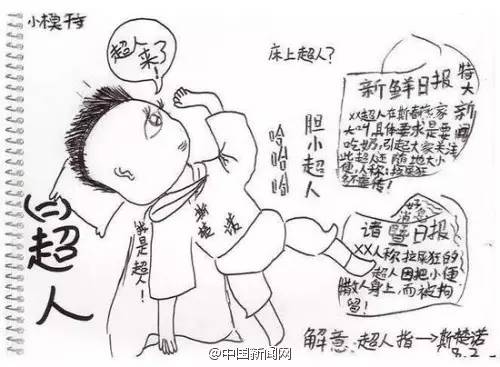 小模特
超人
来了!
床上超人?
新鲜日报
特大新闻
XX超人在斯春家
大叫,具体要求是要
吃奶,引起大家关注
此超人还随地大小
便,人称:拉屎狂
胆小超人
哈哈哈
(二)超人
我是超人!
斯楚诺
好消息
诸暨日报
XX人称拉屎狂的
超人因把小便
撒人身上,而被拘
留!
解意:超人指→斯楚诺
9.2
@中国新闻网